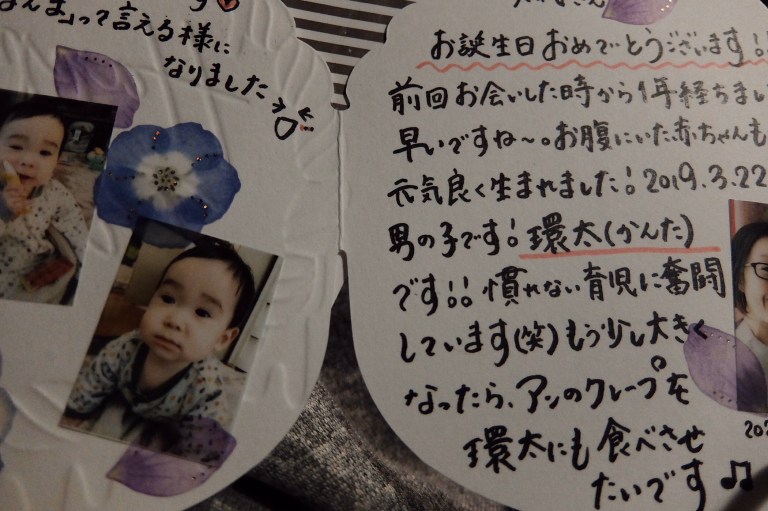 って言える様に
なりました
お誕生日おめでとうございます!!
前回お会いした時から1年経ちまし
早いですね〜。お腹にいた赤ちゃんも
元気良く生まれました! 2019.3.22
男の子です! 環太(かんた)
です!! 慣れない育児に奮闘
しています(笑)もう少し大きく
なったら、アンのクレープを
環太にも食べさせ
たいです♫
202